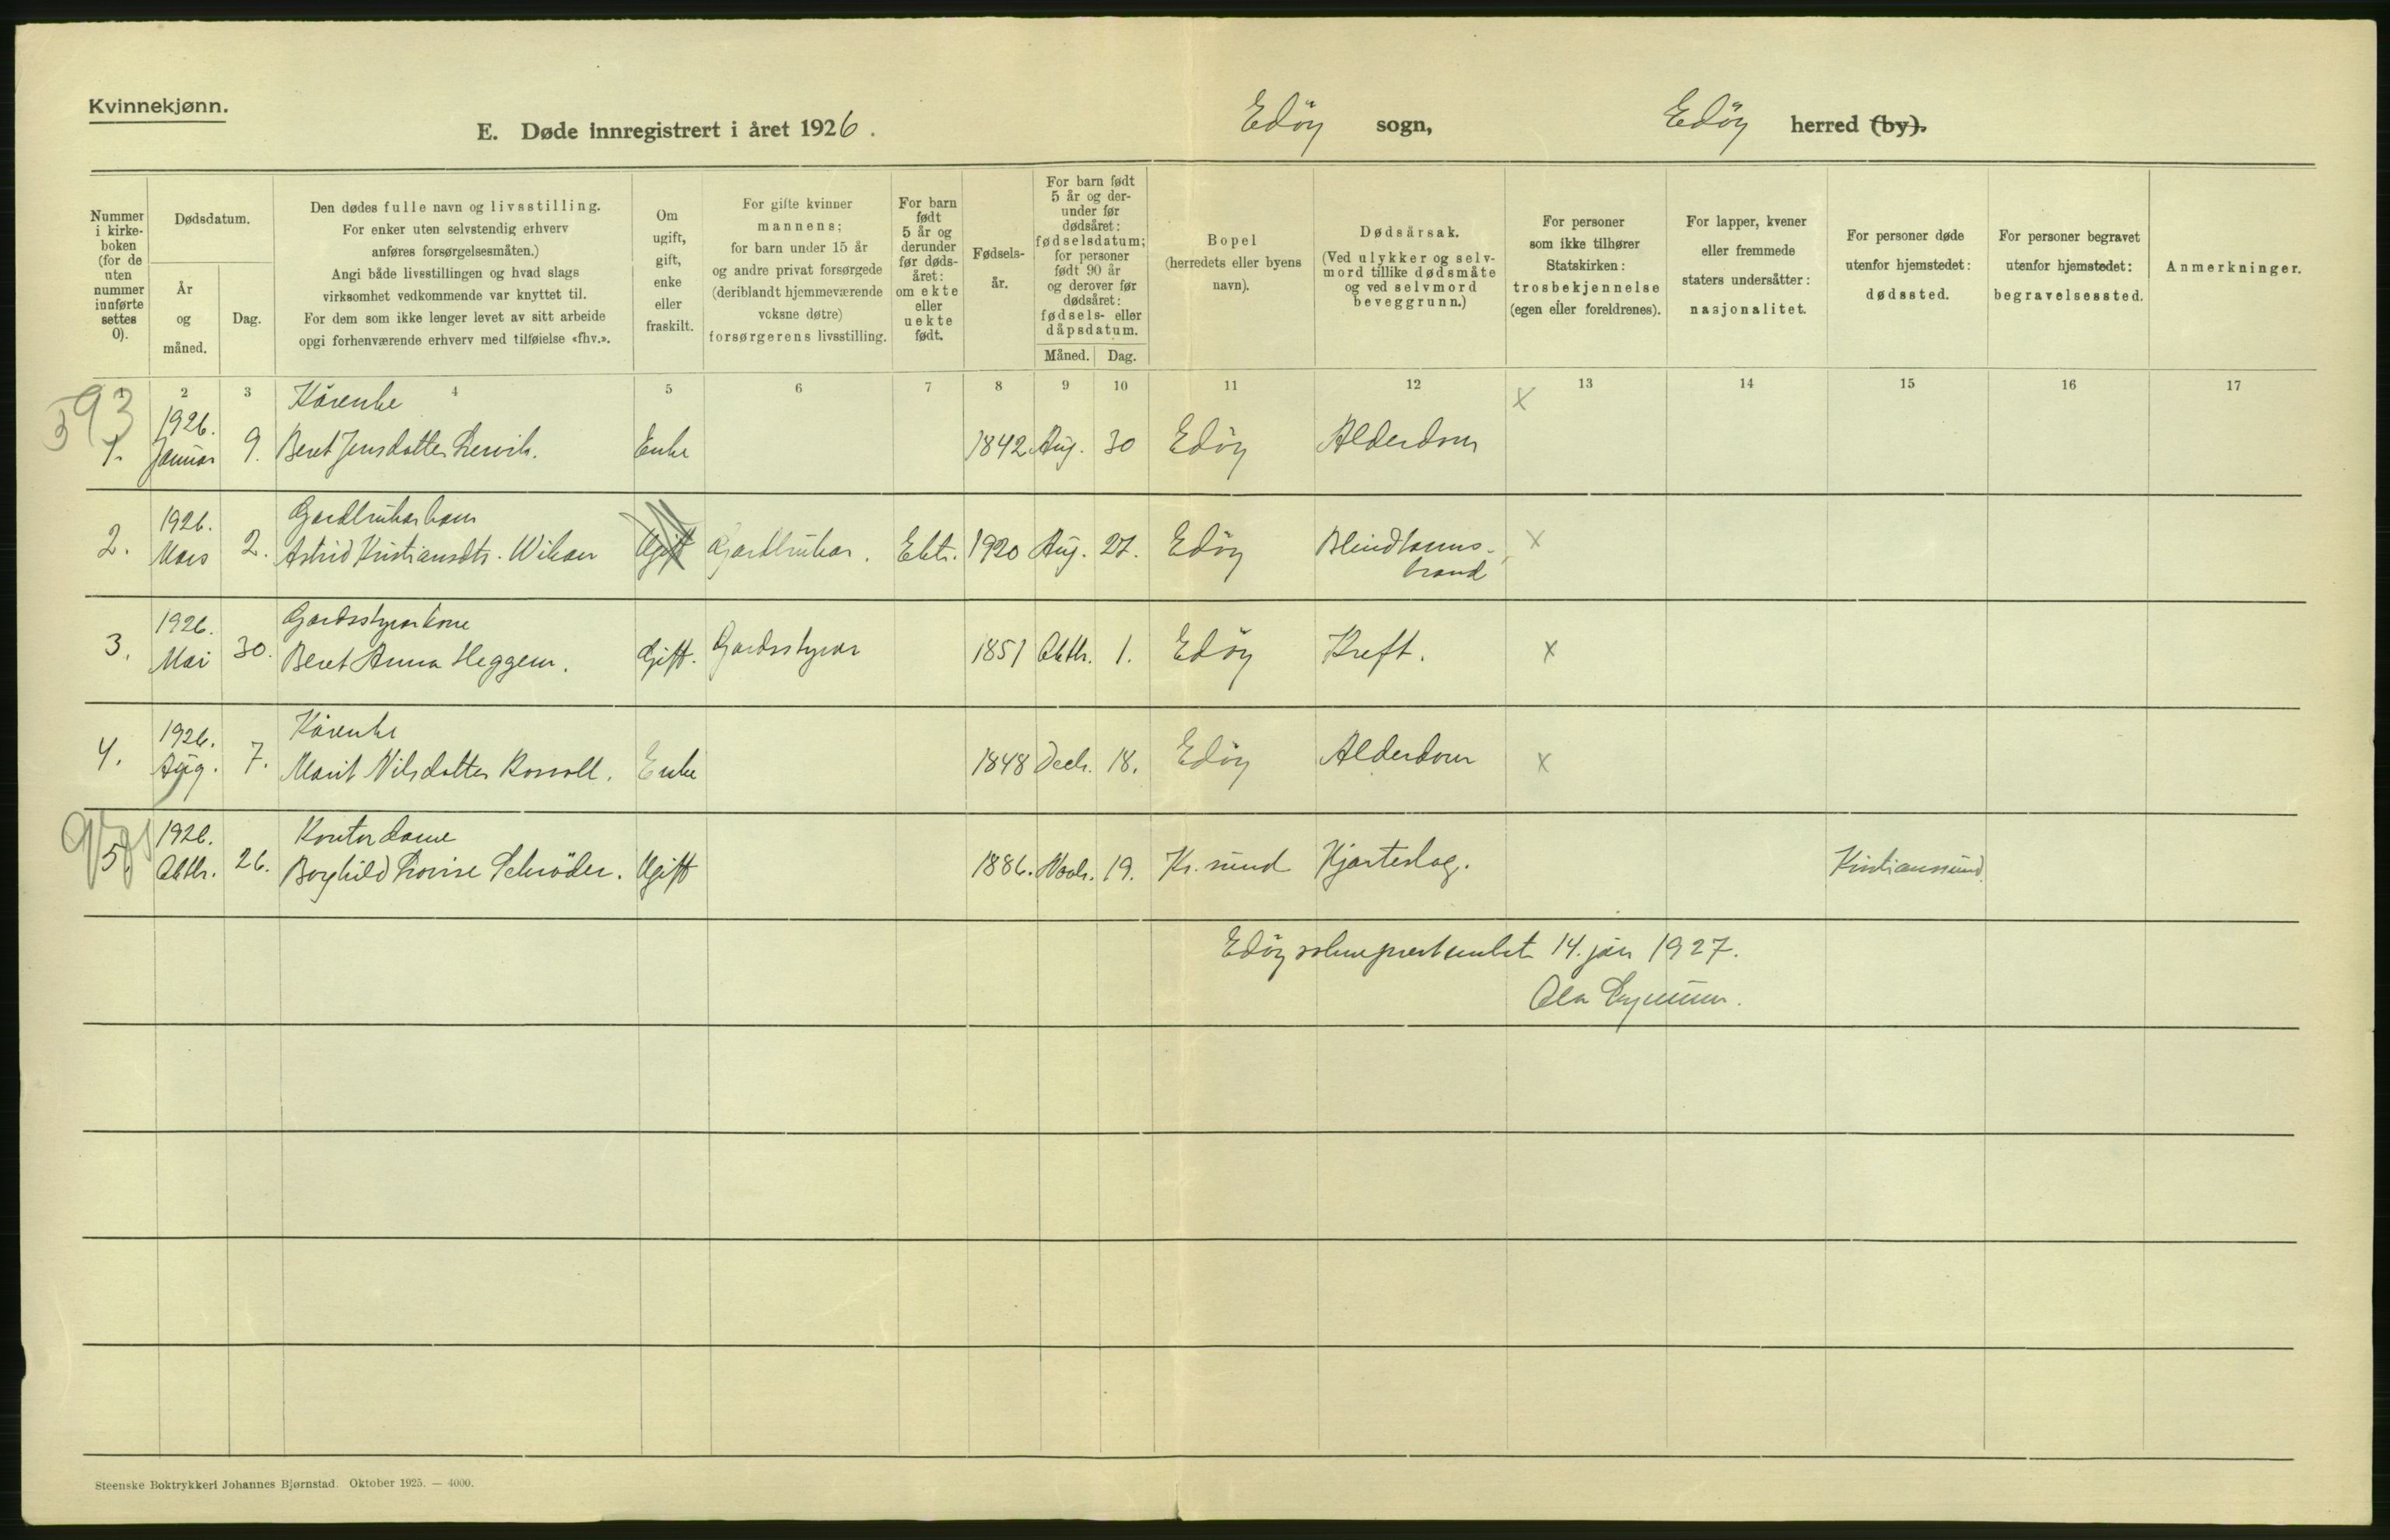 Kvinnekjønn.
E. Døde innregistrert i året 1926.
Edöy sogn,
Edöy herred (by).
Nummer
i kirke-
boken
(for de
uten
nummer
innførte
settes
0).
Dødsdatum.
År
og
måned.
Dag.
Den dødes fulle navn og livsstilling.
For enker uten selvstendig erhverv
anføres forsørgelsesmåten.)
Angi både livsstillingen og hvad slags
virksomhet vedkommende var knyttet til.
For dem som ikke lenger levet av sitt arbeide
opgi forhenværende erhverv med tilføielse «fhv.».
Om
ugift,
gift,
enke
eller
fraskilt.
For gifte kvinner
mannens;
for barn under 15 år
og andre privat forsørgede
(deriblandt hjemmeværende
voksne døtre)
forsørgerens livsstilling.
For barn
født
5 år og
derunder
før døds-
året:
om ekte
eller
uekte
født.
Fødsels-
år.
For barn født
5 år og der-
under før
dødsåret:
fødselsdatum;
for personer
født 90 år
og derover før
dødsåret:
fødsels- eller
dåpsdatum.
Måned. Dag.
Bopel
(herredets eller byens
navn).
Dødsårsak.
(Ved ulykker og selv-
mord tillike dødsmåte
og ved selvmord
beveggrunn.)
For personer
som ikke tilhører
Statskirken:
trosbekjennelse
(egen eller foreldrenes).
For lapper, kvener
eller fremmede
staters undersåtter:
nasjonalitet.
For personer døde
utenfor hjemstedet:
dødssted.
For personer begravet
utenfor hjemstedet:
begravelsessted.
Anmerkninger.
2 3 4 5 6 7 8 9 10 11 12 13 14 15 16 17
593
Kårenke x
1. 1926. Januar 9. Beret Jensdatter Enke 1842 Aug. 30 Edöy Alderdom
Gardbrukarbarn
2. 1926. Mars 2. Astrid Kristiansdtr. Wikan Ugift Gardbrukar. Ekte. 1920 Aug. 27. Edöy Blindtarms- x
brand
Gardsstyrarkone
3. 1926. Mai 30. Beret Anna Heggem. Gift. Gardsstyrar 1851 Oktbr. 1. Edöy Kreft. x
Kårenke
4. 1926. Aug. 7. Marit Nilsdatter Enke 1848 Decbr. 18. Edöy Alderdom x
Kontordame
5. 1926. Oktbr. 26. Borghild Lovise Schröder. Ugift 1886. Novbr. 19. Kr.sund Hjarteslag. Kristiansund.
Edöy sokneprestembet 14. jan 1927.
Ola
Steenske Boktrykkeri Johannes Bjørnstad. Oktober 1925. — 4000.